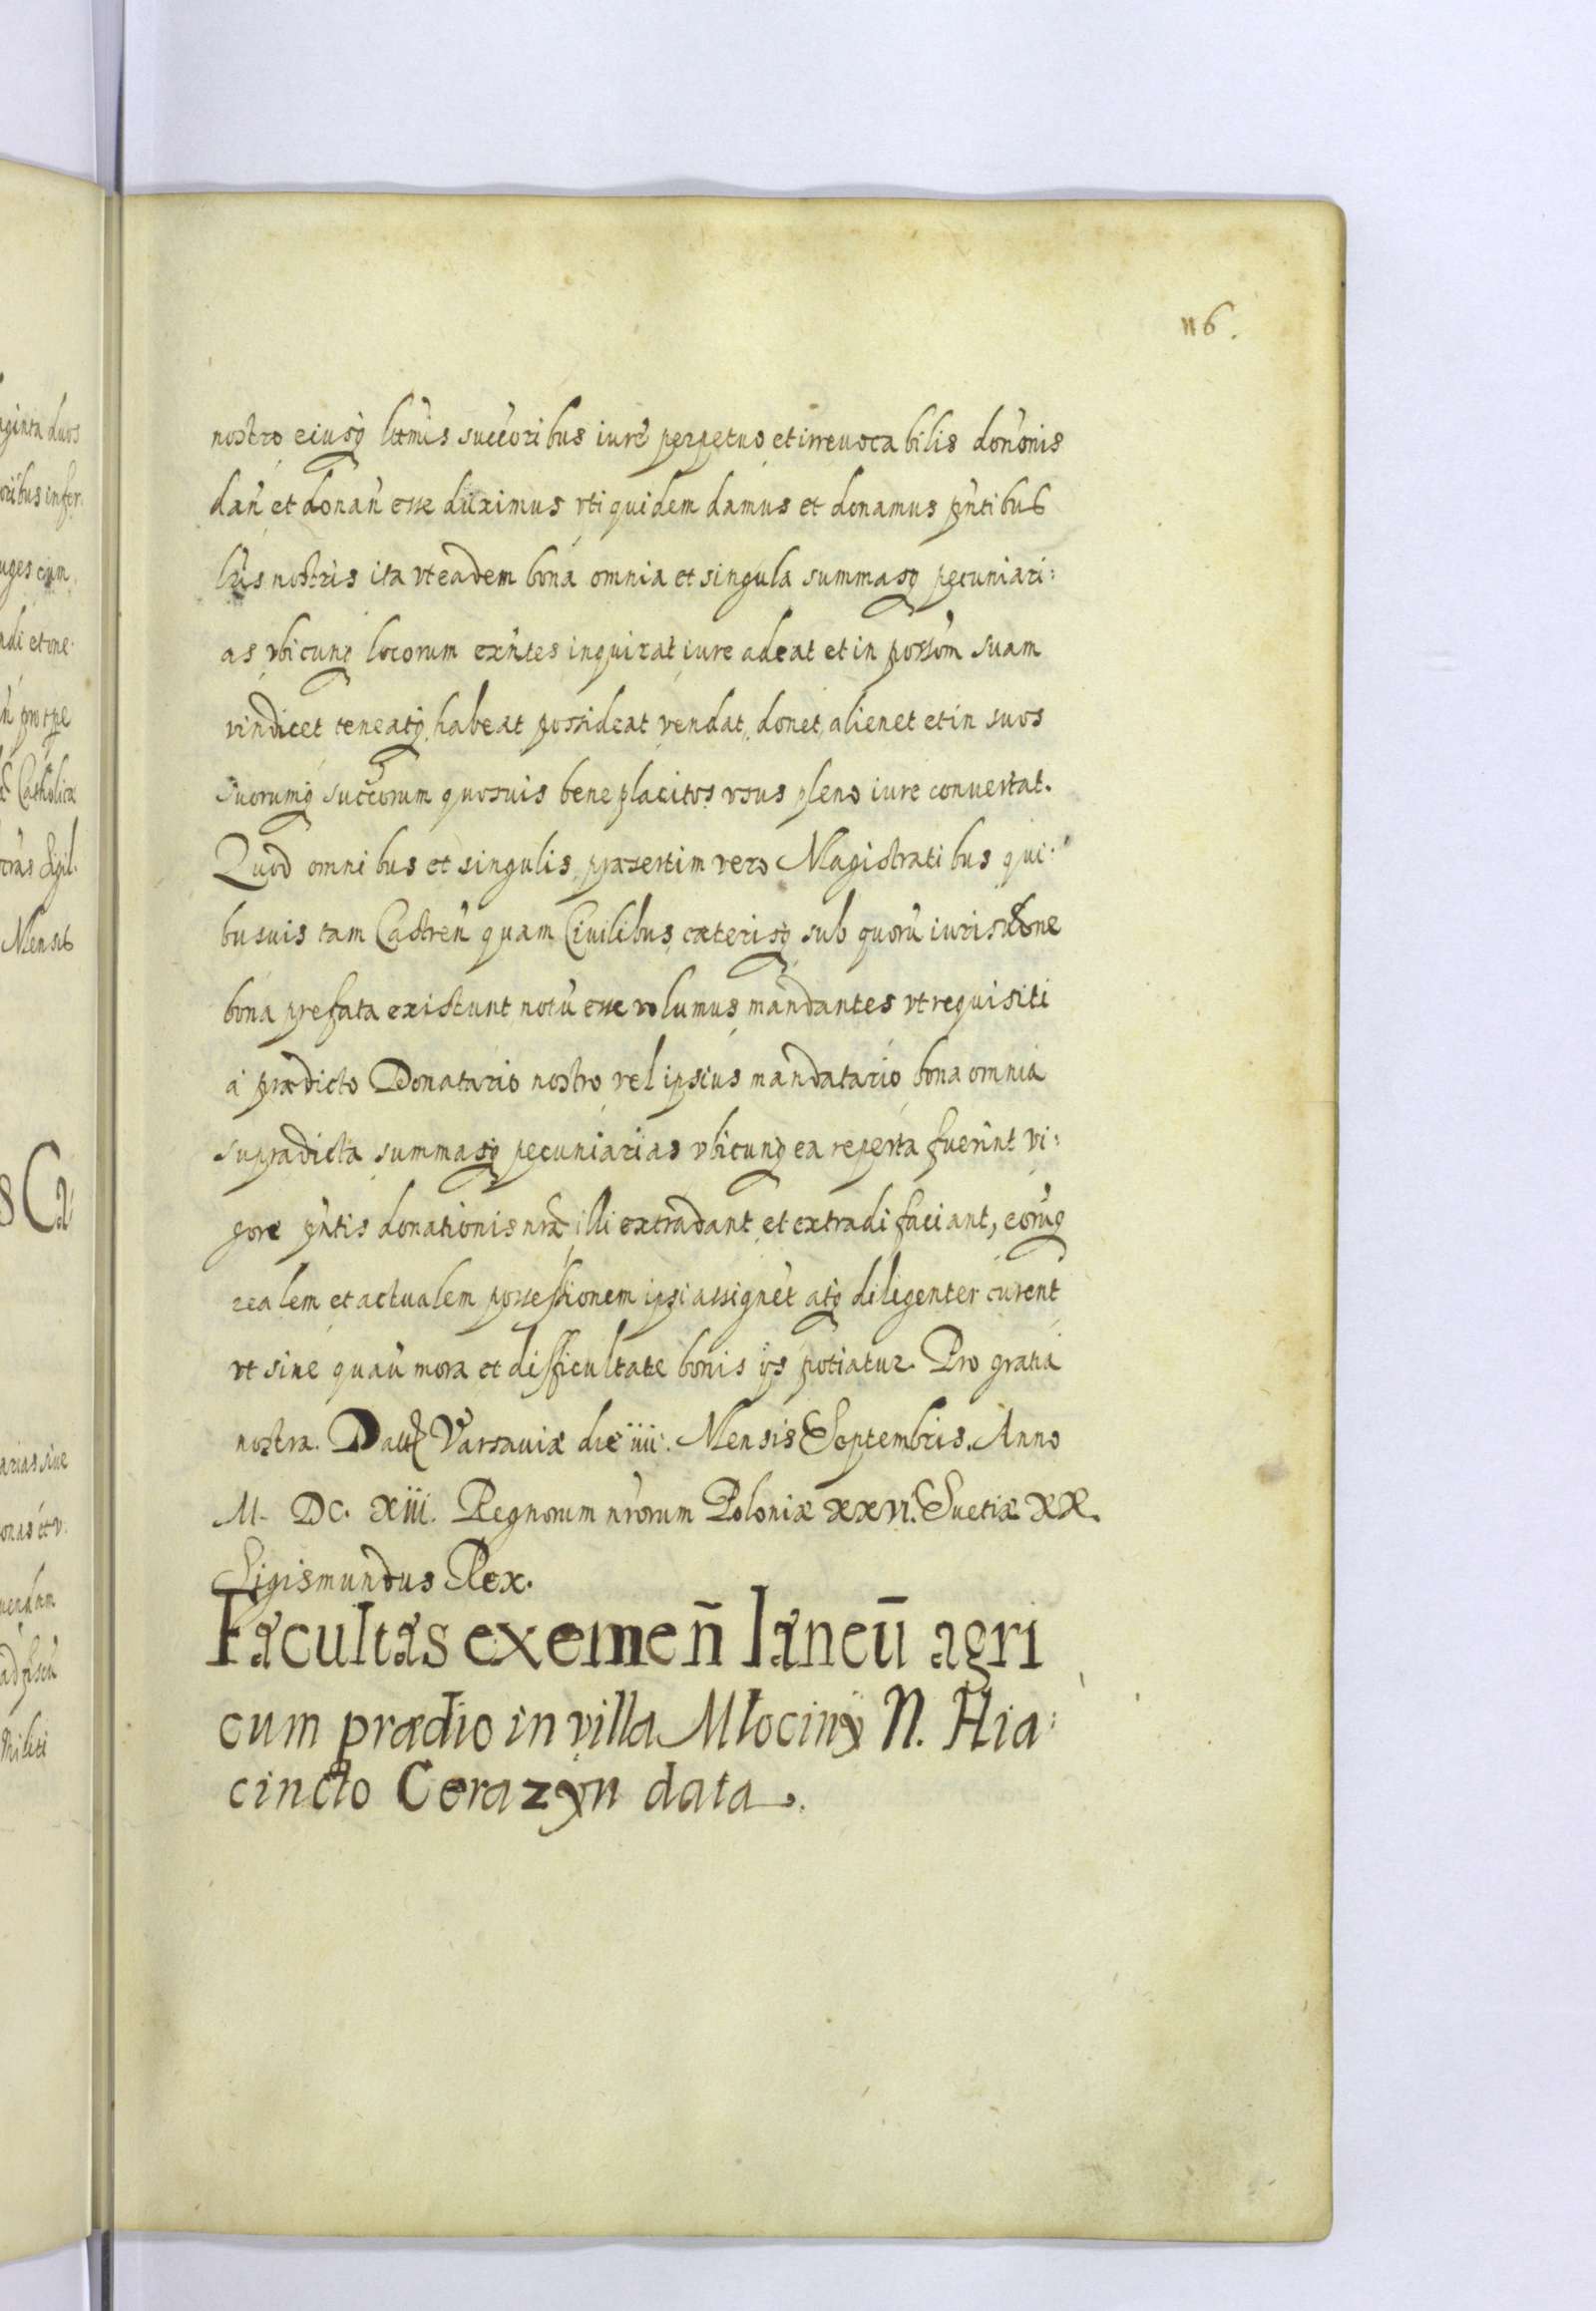 116.
nostro eiusq ltimis succoribus iure perpetuo et irreuocabilis donōnis
dan̄ et donan̄ esse duximus vti quidem damus et donamus pn̄tibus
lr̄is nostris ita vt eadem bona omnia et singula summasq pecuniari:
as vbicunq locorum exn̄tes inquirat iure adeat et in possōm suam
vindicet teneatq, habeat possideat, vendat, donet, alienet et in suos
suorumq succorum quosuis beneplacitos vsus pleno iure conuertat.
Quod omnibus et singulis, præsertim vero Magistratibus qui:
busuis tam Castren̄ quam Ciuilibus, cæterisq sub quorū iurisdōne
bona prefata existunt notū esse volumus, mandantes vt requisiti
à prædicto Donatario nostro vel ipsius mandatario bona omnia
supradicta summasq pecuniarias vbicunq ea reperta fuerint vi:
gore pn̄tis donationis nr̄æ illi extradant et extradi faciant, eorūq
realem et actualem possessionem ipsi assignēt atq diligenter curent
vt sine quauū mora et difficultate bonis ijs potiatur. Pro gratia
nostra. Dat Varsauiæ die iiii. Mensis Septembris. Anno
M. DC. xiii. Regnorum nr̄orum Poloniæ xxvi. Suetiæ xx.
Sigismundus Rex.
Facultas exemen̄ laneū agri
cum prædio in villa Młociny N. Hia:
cincto Cerazyn data.